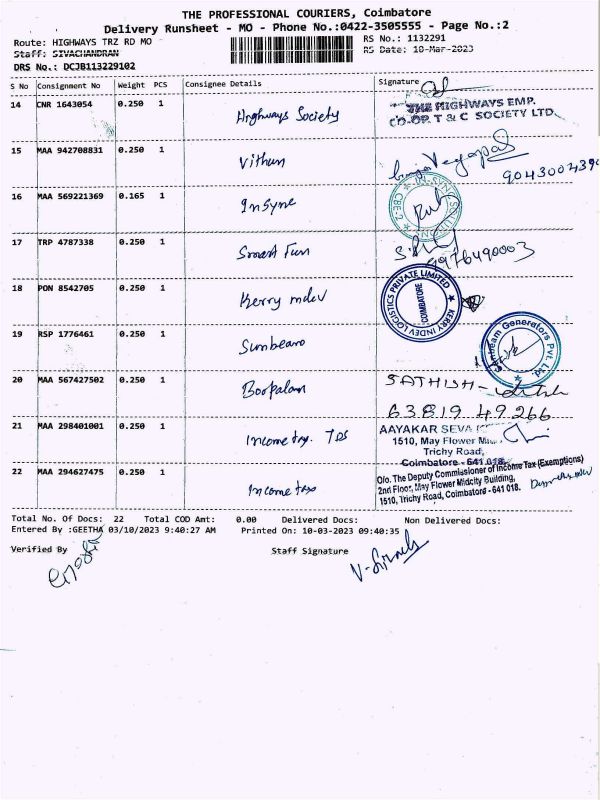 THE PROFESSIONAL COURIERS, Coimbatore
Delivery Runsheet - MO - Phone No.:0422-3505555 - Page No.:2
Route: HIGHWAYS TRZ RD MO
RS No.: 1132291
Staff: SIVACHANDRAN
RS Date: 10-Mar-2023
DRS No.: DCJB113229102
S No Consignment No Weight PCS Consignee Details Signature
14 CNR 1643054 0.250 1 Highways Society
THE HIGHWAYS EMP.
CO-OP. T & C SOCIETY LTD.
15 MAA 942708831 0.250 1 Vithun
16 MAA 569221369 0.165 1 Insyne
17 TRP 4787338 0.250 1 Smart Fun
9976490003
18 PON 8542705 0.250 1 Kerry indev
KERRY INDEV LOGISTICS PRIVATE LIMITED
COIMBATORE
19 RSP 1776461 0.250 1 Sunbeam
Sunbeam Generators Pvt. Ltd.
20 MAA 567427502 0.250 1 Boopalan
SATHISH
63819 49266
21 MAA 298401001 0.250 1 Income tax. TDS
AAYAKAR SEVA
1510, May Flower
Trichy Road,
Coimbatore - 641 018.
22 MAA 294627475 0.250 1 Income tax
O/o. The Deputy Commissioner of Income Tax (Exemptions)
2nd Floor, May Flower Midcity Building,
1510, Trichy Road, Coimbatore - 641 018.
Total No. Of Docs: 22 Total COD Amt: 0.00 Delivered Docs: Non Delivered Docs:
Entered By :GEETHA 03/10/2023 9:40:27 AM Printed On: 10-03-2023 09:40:35
Verified By Staff Signature